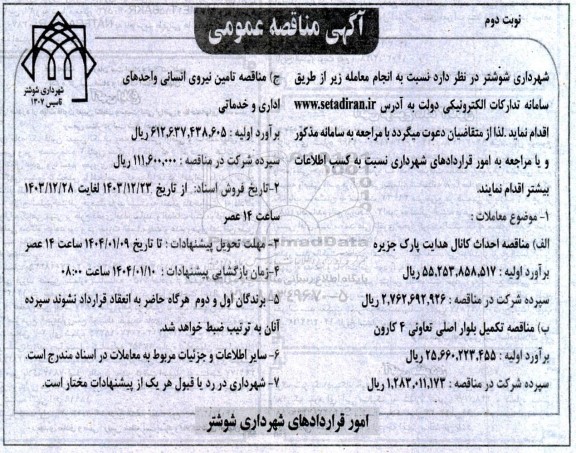 نوبت دوم
آگهی مناقصه عمومی
شهرداری شوشتر
تاسیس ۱۳۰۲
شهرداری شوشتر در نظر دارد نسبت به انجام معامله زیر از طریق
سامانه تدارکات الکترونیکی دولت به آدرس www.setadiran.ir
اقدام نماید .لذا از متقاضیان دعوت میگردد با مراجعه به سامانه مذکور
و یا مراجعه به امور قراردادهای شهرداری نسبت به کسب اطلاعات
بیشتر اقدام نمایند.
۱- موضوع معاملات :
الف) مناقصه احداث کانال هدایت پارک جزیره
برآورد اولیه : ۵۵,۲۵۳,۸۵۸,۵۱۷ ریال
سپرده شرکت در مناقصه : ۲,۷۶۲,۶۹۲,۹۲۶ ریال
ب) مناقصه تکمیل بلوار اصلی تعاونی ۴ کارون
برآورد اولیه : ۲۵,۶۶۰,۲۲۳,۴۵۵ ریال
سپرده شرکت در مناقصه : ۱,۲۸۳,۰۱۱,۱۷۳ ریال
ج) مناقصه تامین نیروی انسانی واحدهای
اداری و خدماتی
برآورد اولیه : ۶۱۲,۶۳۷,۴۳۸,۶۰۵ ریال
سپرده شرکت در مناقصه : ۱۱۱,۶۰۰,۰۰۰ ریال
۲-تاریخ فروش اسناد: از تاریخ ۱۴۰۳/۱۲/۲۳ لغایت ۱۴۰۳/۱۲/۲۸
ساعت ۱۴ عصر
۳- مهلت تحویل پیشنهادات : تا تاریخ ۱۴۰۴/۰۱/۰۹ ساعت ۱۴ عصر
۴-زمان بازگشایی پیشنهادات : ۱۴۰۴/۰۱/۱۰ ساعت ۰۸:۰۰
۵- برندگان اول و دوم هرگاه حاضر به انعقاد قرارداد نشوند سپرده
آنان به ترتیب ضبط خواهد شد.
۶- سایر اطلاعات و جزئیات مربوط به معاملات در اسناد مندرج است.
۷- شهرداری در رد یا قبول هر یک از پیشنهادات مختار است.
امور قراردادهای شهرداری شوشتر